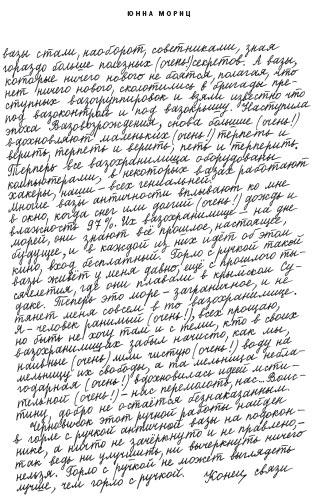 ЮННА МОРИЦ
вазы стали, наоборот, советниками, зная
гораздо больше полезных (очень!) секретов. А вазы,
которые ничего нового не боятся, полагая, что
нет ничего нового, сколотились в бригады пре-
ступных вазогруппировок и взяли известно что
под вазоконтроль и под вазокрышу. Наступила
эпоха Вазовозрождения, снова больше (очень!)
вдохновляют маленьких (очень!) терпеть и
верить, терпеть и верить, петь и терперить.
Теперь все вазохранилища оборудованы
компьютерами, в некоторых вазах работают
хакеры, наши – всех гениальней.
Многие вазы античности вплывают ко мне
в окно, когда снег или долгий (очень!) дождь и
влажность 97%. Их вазохранилище – на дне
морей, они знают всё прошлое, настоящее,
будущее, и в каждой из них идёт об этом
кино, вход бесплатный. Горло с ручкой такой
вазы живёт у меня давно, ещё с прошлого ты-
сячелетия, где они плавали в крымском Су-
даке. Теперь это море – заграничное, и не
тянет меня совсем в то вазохранилище.
Я – человек ранимый (очень!), всех прощаю,
но быть не хочу там и с теми, кто в своих
вазохранилищах забыл начисто, как мы,
наивные (очень) лили чистую (очень!) воду на
мельницу их свободы, а та мельница небла-
годарная (очень!) вдохновилась идеей мсти-
тельной (очень!) – нас перемолоть, нас... Воис-
тину, добро не остаётся безнаказанным.
Черновичок этот ручной работы найден
в горле с ручкой античной вазы на подокон-
нике, а ничто не зачёркнуто и не правлено, –
так ведь ни улучшить, ни вычеркнуть ничего
нельзя. Горло с ручкой не может выглядеть
лучше, чем горло с ручкой. Конец связи